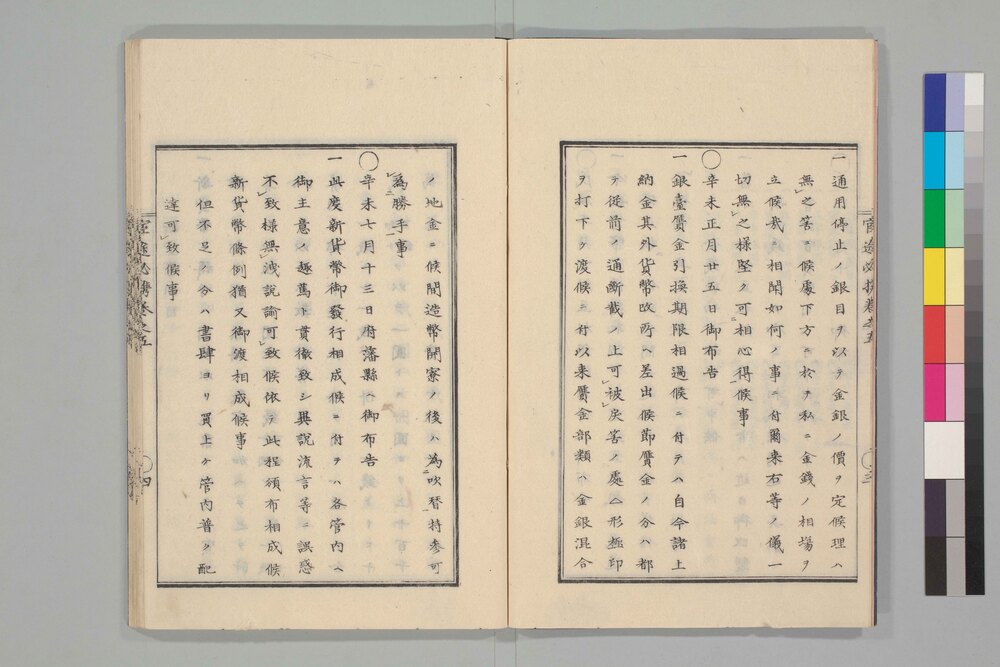 一通用停止ノ銀目ヲ以テ金銀ノ價ヲ定候理ハ
無之筈ニ候處下方ニ於テ私ニ金錢ノ相場ヲ
立候哉ニ相聞如何ノ事ニ付爾来右等ノ儀一
切無之様堅ク可相心得候事
〇辛未正月廿五日御布告
一銀臺贋金引換期限相過候ニ付テハ自今諸上
納金其外貨幣改所ヘ差出候節贋金ノ分ハ都
テ従前ノ通断截ノ上可被戻筈ノ處△形極印
ヲ打下ケ渡候ニ付以来贋金部類ハ金銀混合
ノ地金ニ候間造幣開寮ノ後ハ為吹替持参可
為勝手事
〇辛未七月十三日府藩縣ヘ御布告
一此度新貨幣御發行相成候ニ付テハ各管内ヘ
御主意ノ趣篤ト貫徹致シ異説流言等ニ誤惑
不致様無洩説諭可致候依テ此程頒布相成候
新貨幣條例猶又御渡相成候事
但不足ノ分ハ書肆ヨリ買上ケ管内普ク配
達可致候事
官途必携巻之五
〇三
官途必携巻之五
〇四